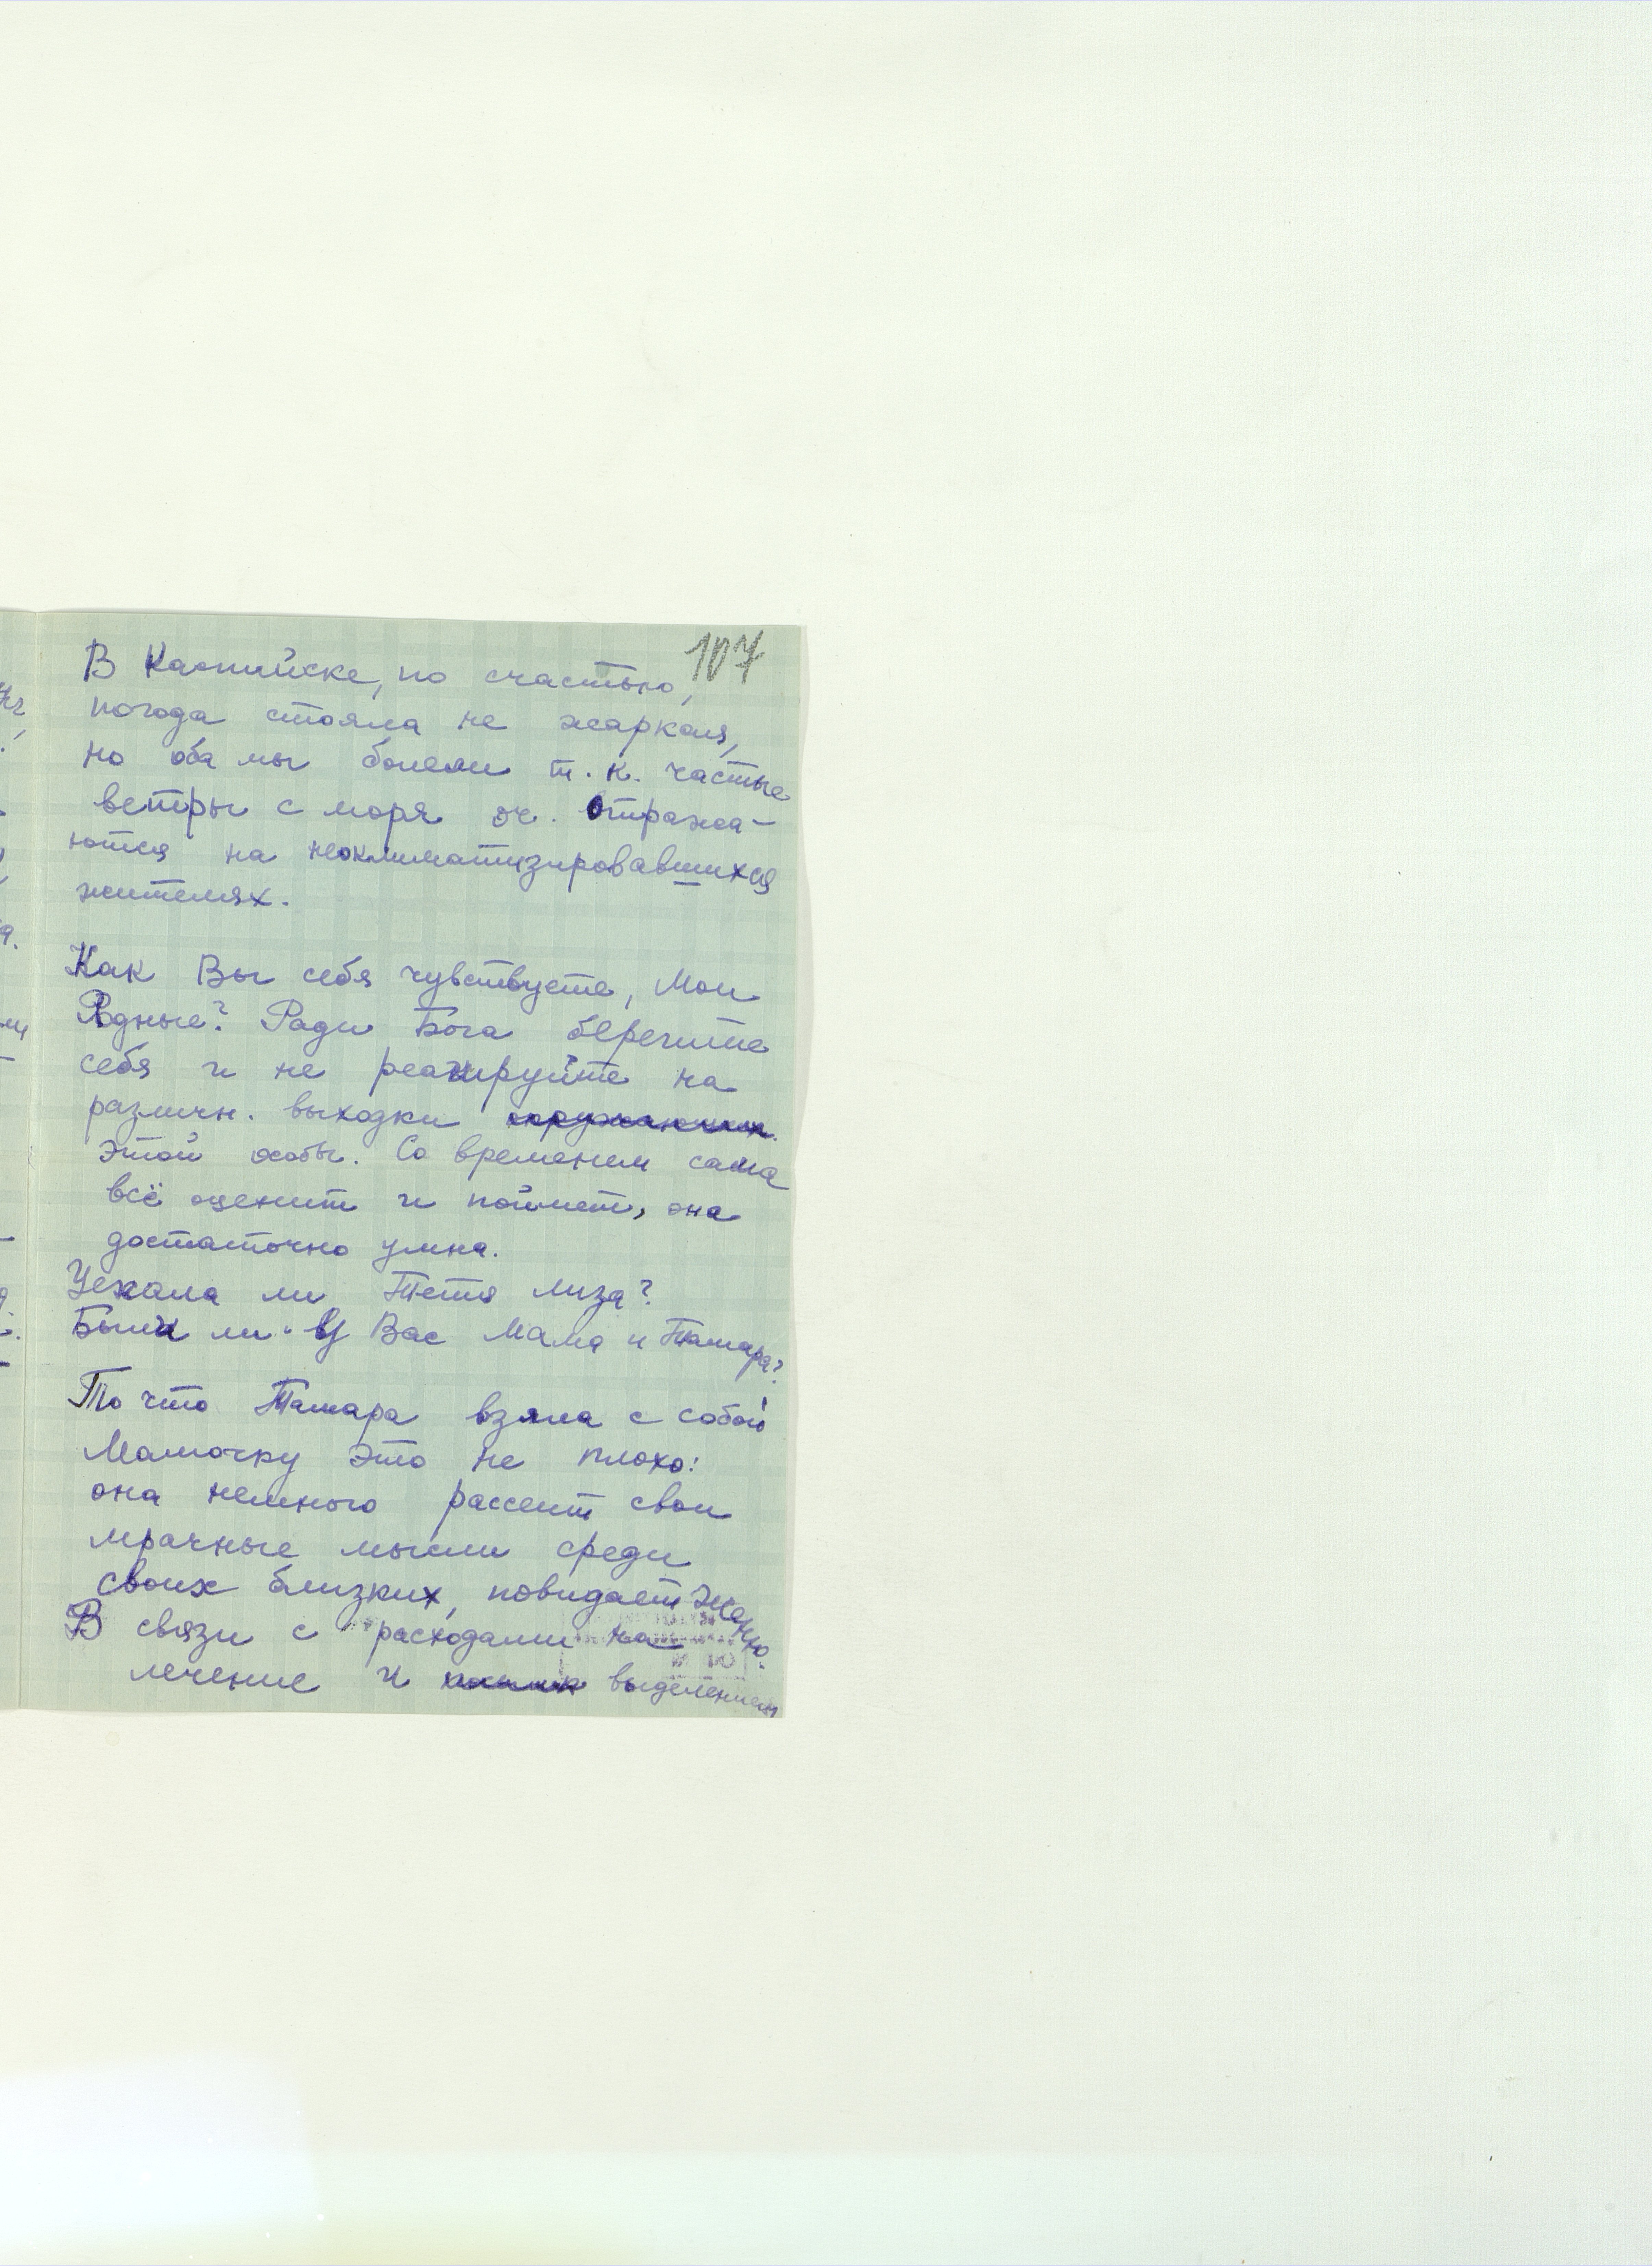 107
В Каспийске, по счастью,
погода стояла не жаркая,
но оба мы болели т. к. частые
ветры с моря оч. отража-
ются на неоклиматизировавшихся
жителях.
Как Вы себя чувствуете, Мои
Родные? Ради Бога берегите
себя и не реагируйте на
различн. выходки окружающих.
этой особы. Со временем сама
всё оценит и поймет, она
достаточно умна.
Уехала ли Тетя Лиза?
Были ли у Вас Мама и Тамара?
То что Тамара взяла с собой
Мамочку это не плохо:
она немного рассеит свои
мрачные мысли среди
своих близких, повидает Женю.
В связи с расходами на
лечение и выделением